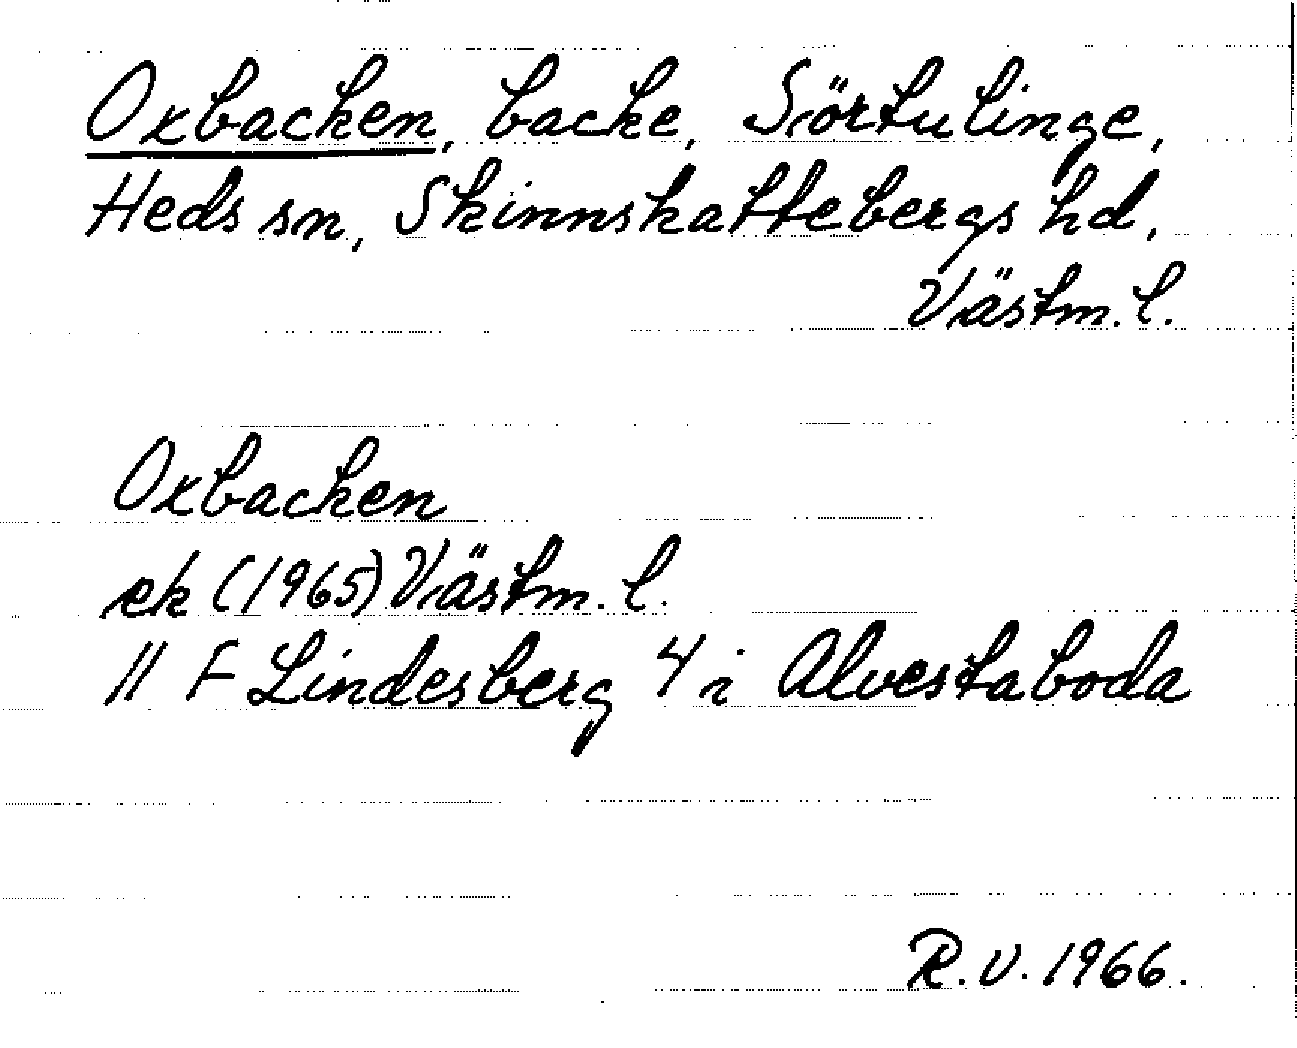 Oxbacken, backe, Sörtulinge,
Heds sn, Skinnskattebergs hd,
Västm. l.
Oxbacken
ek (1965) Västm. l.
11 F Lindesberg 4 i Alvestaboda
R.V. 1966.